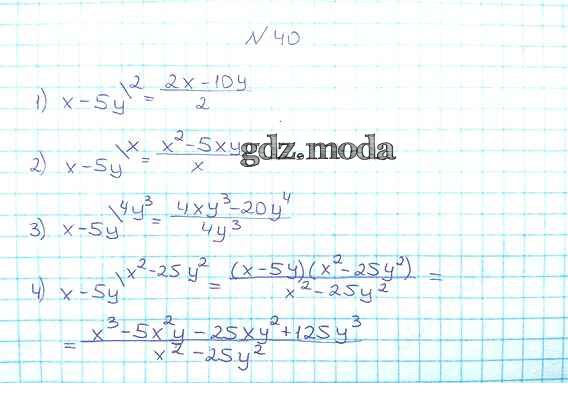 N 40
1) x-5y\2 = 2x-10y / 2
2) x-5y\x = x²-5xy / x
gdz.moda
3) x-5y\4y³ = 4xy³-20y⁴ / 4y³
4) x-5y\x²-25y² = (x-5y)(x²-25y²) / x²-25y² =
= x³-5x²y-25xy²+125y³ / x²-25y²